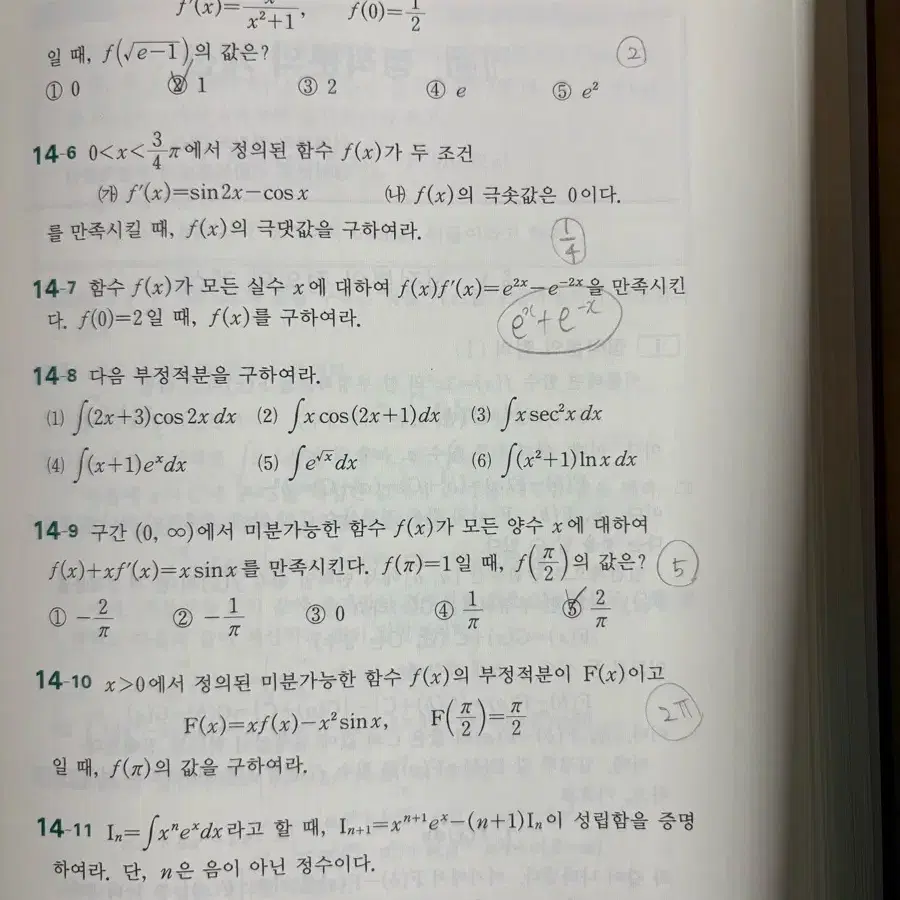 f'(x)=x/(x²+1),  f(0)=1/2
일 때, f(√(e−1))의 값은?  ②
① 0  ② 1  ③ 2  ④ e  ⑤ e²
14-6 0<x<3/4 π에서 정의된 함수 f(x)가 두 조건
㈎ f'(x)=sin 2x−cos x  ㈏ f(x)의 극솟값은 0이다.
를 만족시킬 때, f(x)의 극댓값을 구하여라.  1/4
14-7 함수 f(x)가 모든 실수 x에 대하여 f(x)f'(x)=e²ˣ−e⁻²ˣ을 만족시킨
다. f(0)=2일 때, f(x)를 구하여라.  eˣ+e⁻ˣ
14-8 다음 부정적분을 구하여라.
(1) ∫(2x+3)cos 2x dx  (2) ∫x cos(2x+1)dx  (3) ∫x sec²x dx
(4) ∫(x+1)eˣdx  (5) ∫e^√x dx  (6) ∫(x²+1)ln x dx
14-9 구간 (0, ∞)에서 미분가능한 함수 f(x)가 모든 양수 x에 대하여
f(x)+xf'(x)=x sin x를 만족시킨다. f(π)=1일 때, f(π/2)의 값은?  5
① −2/π  ② −1/π  ③ 0  ④ 1/π  ⑤ 2/π
14-10 x>0에서 정의된 미분가능한 함수 f(x)의 부정적분이 F(x)이고
F(x)=xf(x)−x²sin x,  F(π/2)=π/2  2π
일 때, f(π)의 값을 구하여라.
14-11 Iₙ=∫xⁿeˣdx라고 할 때, Iₙ₊₁=xⁿ⁺¹eˣ−(n+1)Iₙ이 성립함을 증명
하여라. 단, n은 음이 아닌 정수이다.